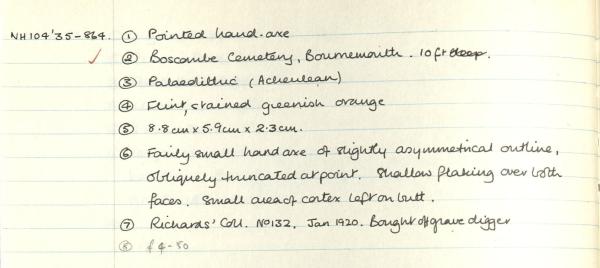 NH104'35-864. ① Pointed hand-axe
② Boscombe Cemetery, Bournemouth. 10ft deep.
③ Palaeolithic (Acheulean)
④ Flint, stained greenish orange
⑤ 8.8cm x 5.9cm x 2.3cm.
⑥ Fairly small hand axe of slightly asymmetrical outline,
obliquely truncated at point. Shallow flaking over both
faces. Small area of cortex left on butt.
⑦ Richards' Coll. No132. Jan 1920. Bought off grave digger
⑧ £4-50